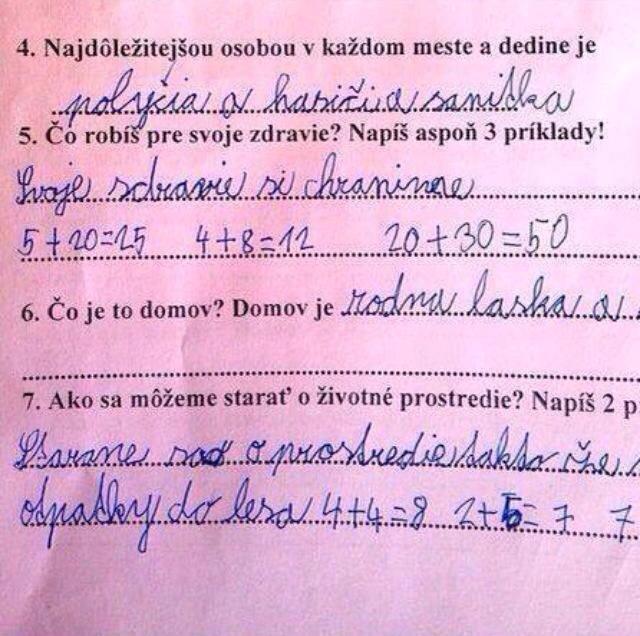 4. Najdôležitejšou osobou v každom meste a dedine je
polycia a hasičia sanitka
5. Čo robíš pre svoje zdravie? Napíš aspoň 3 príklady!
Svoje zdravie si chranime
5+20=25 4+8=12 20+30=50
6. Čo je to domov? Domov je rodna laska a
7. Ako sa môžeme starať o životné prostredie? Napíš 2 p
Starame sa o prostredie takto že
odpatky do lesa 4+4=8 2+5=7 7